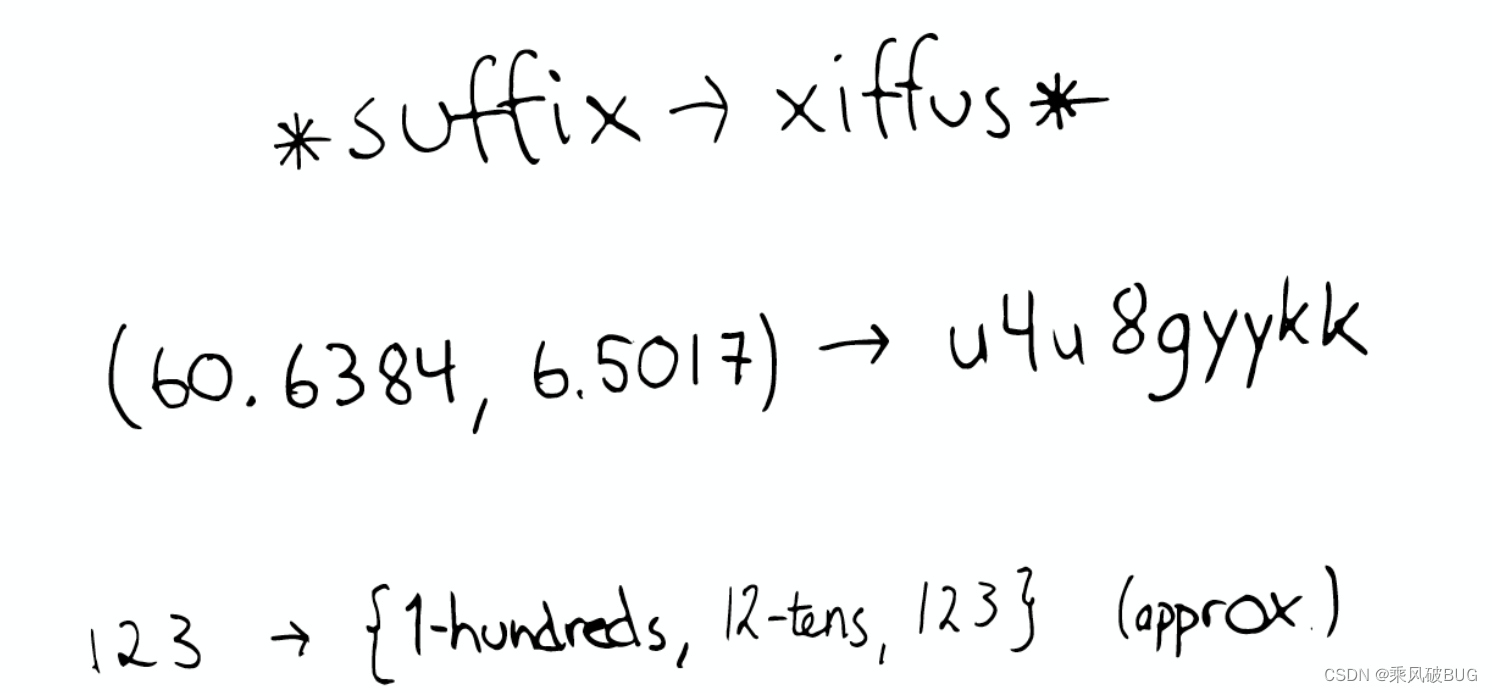 *suffix → xiffus*
(60.6384, 6.5017) → u4u8gyykk
123 → {1-hundreds, 12-tens, 123} (approx.)
CSDN @乘风破BUG